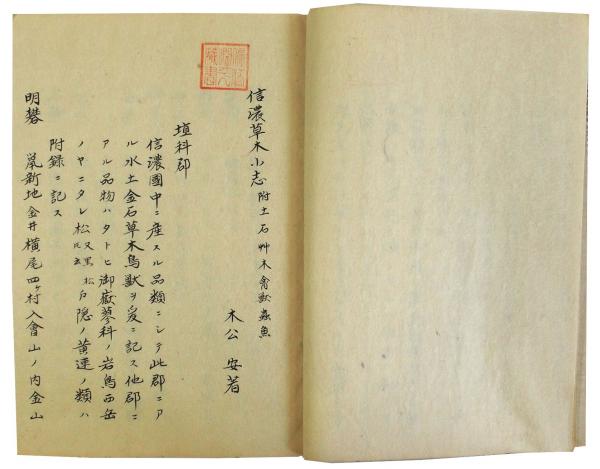 信濃草木小志 附土石艸木禽獣蟲魚
木公 安著
埴科郡
信濃國中ニ産スル品類ニシテ此郡ニア
ル水土金石草木鳥獣ヲ爰ニ記ス他郡ニ
アル品物ハタトヒ御嶽蓼科ノ岩鳥西岳
ノヤニタレ松 又黒松トモ云 戸隠ノ黄連ノ類ハ
附録ニ記ス
明礬 鼠新地金井横尾四ヶ村入會山ノ内金山